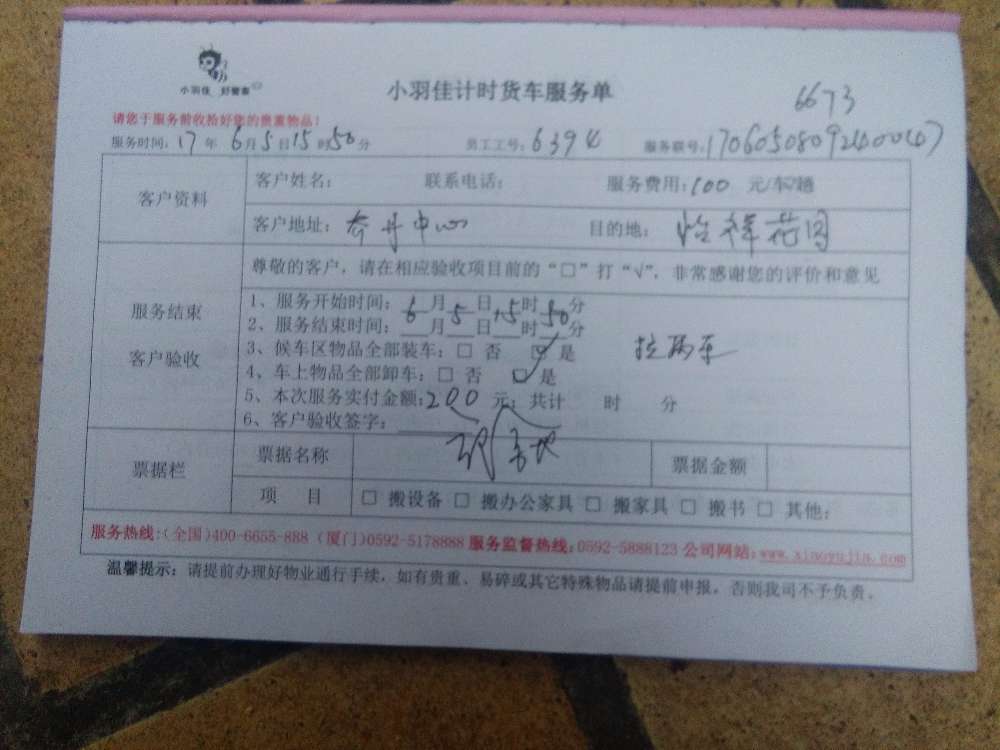 小羽佳 好管家
小羽佳计时货车服务单
6673
请您于服务前收拾好您的贵重物品！
服务时间：17年6月5日15时50分 员工工号：6394 服务联号：
客户资料
客户姓名： 联系电话： 服务费用：100 元/车/趟
客户地址： 中心 目的地：怡祥花园
服务结束
客户验收
尊敬的客户，请在相应验收项目前的“□”打“√”，非常感谢您的评价和意见
1、服务开始时间：6月5日15时50分
2、服务结束时间：__月__日__时__分
3、候车区物品全部装车：□ 否 ☑ 是 拉两车
4、车上物品全部卸车：□ 否 ☑ 是
5、本次服务实付金额：200 元；共计 时 分
6、客户验收签字：
票据栏
票据名称 票据金额
项 目 □ 搬设备 □ 搬办公家具 □ 搬家具 □ 搬书 □ 其他：
服务热线：（全国）400-6655-888（厦门）0592-5178888 服务监督热线：0592-5888123 公司网站：www.xiaoyujia.com
温馨提示：请提前办理好物业通行手续，如有贵重、易碎或其它特殊物品请提前申报，否则我司不予负责。